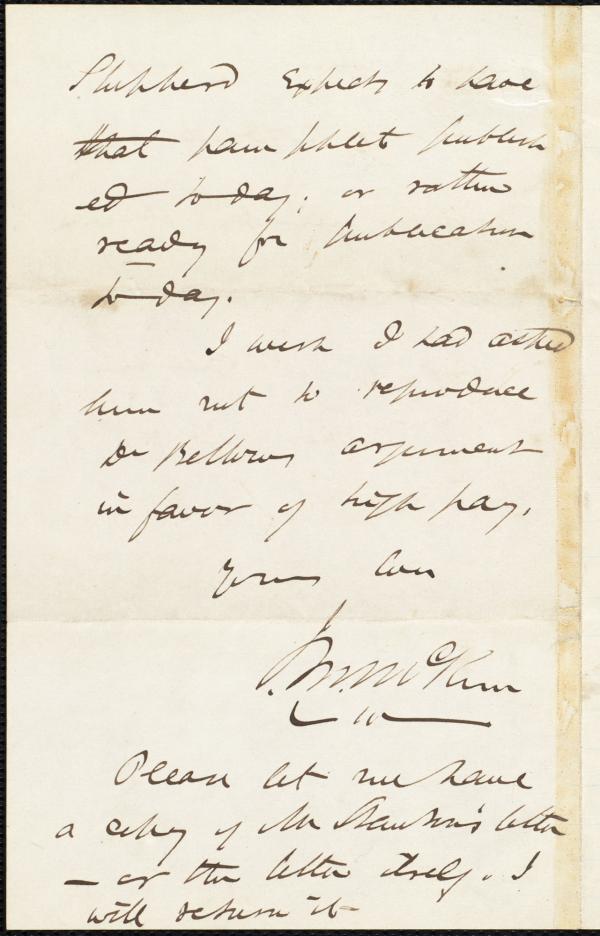 Shepherd expects to have
that pamphlet publish
ed to day; or rather
ready for publication
to-day.
I wish I had asked
him not to reproduce
Dr Bellows argument
in favor of high pay.
Yours &c
J. M. McKim
Please let me have
a copy of Mr letter
— or the letter itself. I
will return it